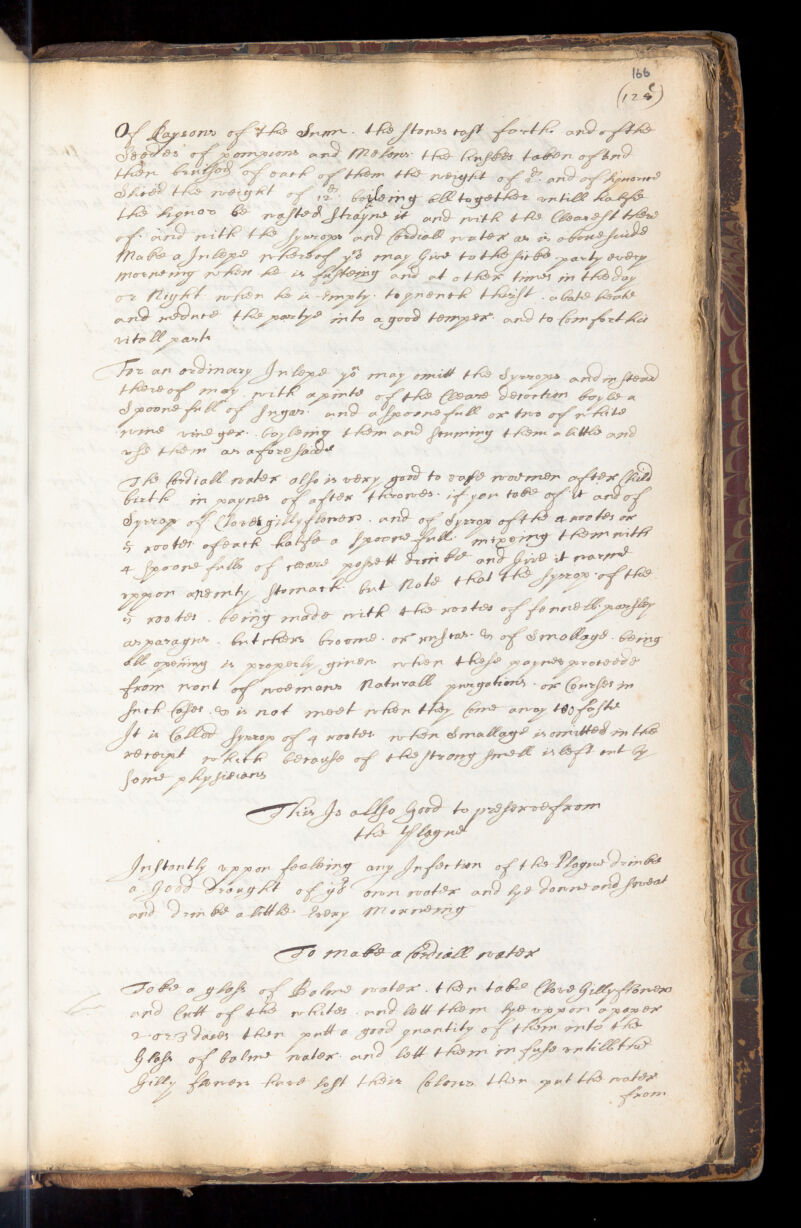 166
(128)
Of Raysons of the Sunn. the stones cast forth. and of the
Seedes of pompions and Melons. the huskes taken of and
then brused of each of them the weight of and of liquorice
Slised the weight of 12 boyleing all together untill halfe
the liquor be wasted Strayne it and with the Clearest there
of. and with the Syrrops and Cordiall water as is abovesaide
Make a Julepe whereof yo may Give to the sicke party every
morneing when he is fasteing and at other times in the day
or Night when he is Empty. to quench thirst. abate heate
and reduce the partye into a good temper. and to Comfort his
vitall parts
For an ordinary Julepe yo may omitt the Syrrops. and in stead
thereof may with a pinte of the Cleare decoction boyle a
Spoone full of Sugar. and a spoonefull or two of white
wine vineger. boyleing them and scuming them a little and
use them as aforesaide
The Cordiall water also is very good to ease woemen after Child
birth in paynes of after throwes. if you take of it and of
Syrrop of Clove gillyflowers. and of Syrrop of the 4 rootes or
5 rootes of each halfe a spoone full. mixeing them with
4 Spoone fulls of cleare possett drinke and Give it warme
uppon an emty stomach. but Note that the Syrrop of the
5 rootes. being made with the rootes of fennell. parsley
asparagus. butchers broome. or ruscus. & of Smallage. being
all opening is properly given when these paynes proceede
from want of woemans Naturall purgations. or Courses in
such Cases. & is not meet when they Come away too faste
It is Called Syrrop of 4 rootes when Smallage is omitted in the
receipt which because of the strong smell is left out by
some physicians
This Is allso Good to preserve from
the Plague
Instantly uppon feeleing any Infection of the Plague drinke
a Good Draught of yor own water and lye downe and sweat
and drinke a little Every Morneing
To make a Cordiall water
Take a glass of Balme water. then take Clove Gillyflowers
and Cutt of the whites. and lett them lye uppon a paper
2 or 3 daies then putt a good quantity of them into the
Glass of balme water. and lett them infuse untill the
Gilly flowers have lost their Colour. then put the water
from